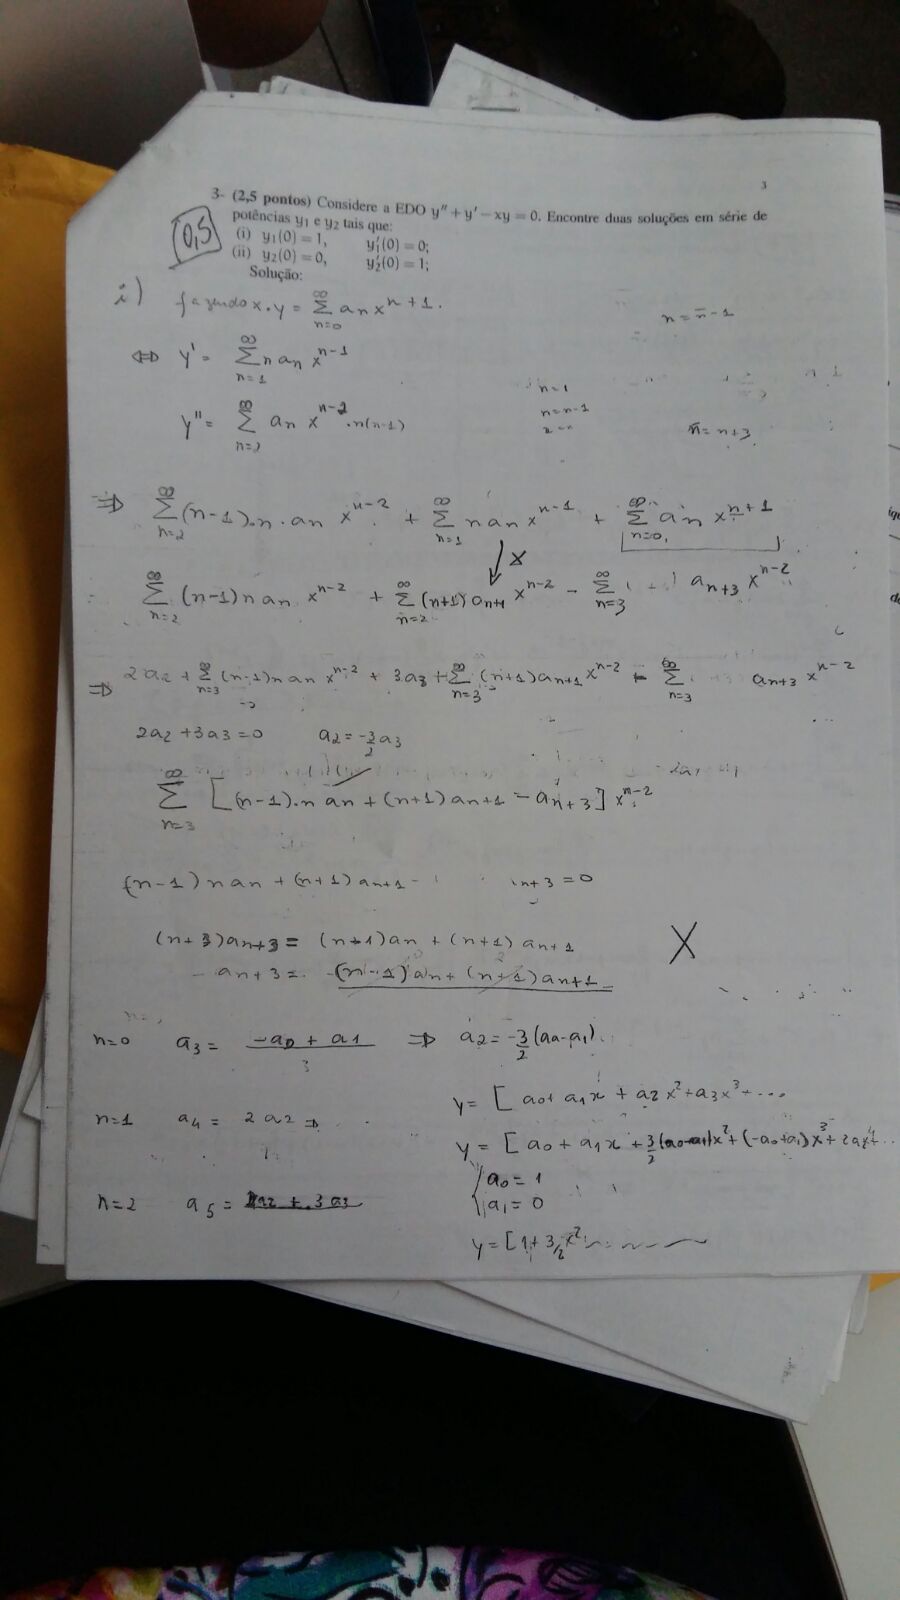 3
3- (2,5 pontos) Considere a EDO y″ + y′ − xy = 0. Encontre duas soluções em série de
potências y₁ e y₂ tais que:
0,5
(i) y₁(0) = 1, y₁′(0) = 0;
(ii) y₂(0) = 0, y₂′(0) = 1;
Solução:
i) fazendo x.y = ∑_{n=0}^{∞} aₙ x^{n+1}.
n = n̄ - 1
⇔ y' = ∑_{n=1}^{∞} n aₙ x^{n-1}
n=1
y'' = ∑_{n=2}^{∞} aₙ x^{n-2} . n(n-1)
n=n-1
n̄ = n+3
⇒ ∑_{n=2}^{∞} (n-1).n.aₙ x^{n-2} + ∑_{n=1}^{∞} n aₙ x^{n-1} + ∑_{n=0}^{∞} aₙ x^{n+1}
x
∑_{n=2}^{∞} (n-1) n aₙ x^{n-2} + ∑_{n=2}^{∞} (n+1) aₙ₊₁ x^{n-2} - ∑_{n=3}^{∞} aₙ₊₃ x^{n-2}
⇒ 2a₂ + ∑_{n=3}^{∞} (n-1) n aₙ x^{n-2} + 3a₃ + ∑_{n=3}^{∞} (n+1) aₙ₊₁ x^{n-2} - ∑_{n=3}^{∞} aₙ₊₃ x^{n-2}
2a₂ + 3a₃ = 0 a₂ = -3/2 a₃
∑_{n=3}^{∞} [(n-1).n aₙ + (n+1) aₙ₊₁ - aₙ₊₃] x^{n-2}
(n-1) n aₙ + (n+1) aₙ₊₁ - n+3 = 0
(n+3) aₙ₊₃ = (n+1) aₙ + (n+1) aₙ₊₁
X
- aₙ₊₃ = -(n-1) aₙ + (n+1) aₙ₊₁
n=0 a₃ = -a₀ + a₁ / 3 ⇒ a₂ = -3/2 (a₀-a₁).
y = [a₀ + a₁x + a₂x² + a₃x³ + ...
n=1 a₄ = 2a₂ ⇒
y = [a₀ + a₁x + 3/2 (a₀-a₁)x² + (-a₀+a₁)x³ + 2a₂x⁴ ...
a₀ = 1
n=2 a₅ = a₂ + 3a₃
a₁ = 0
y = [1 + 3/2 x²